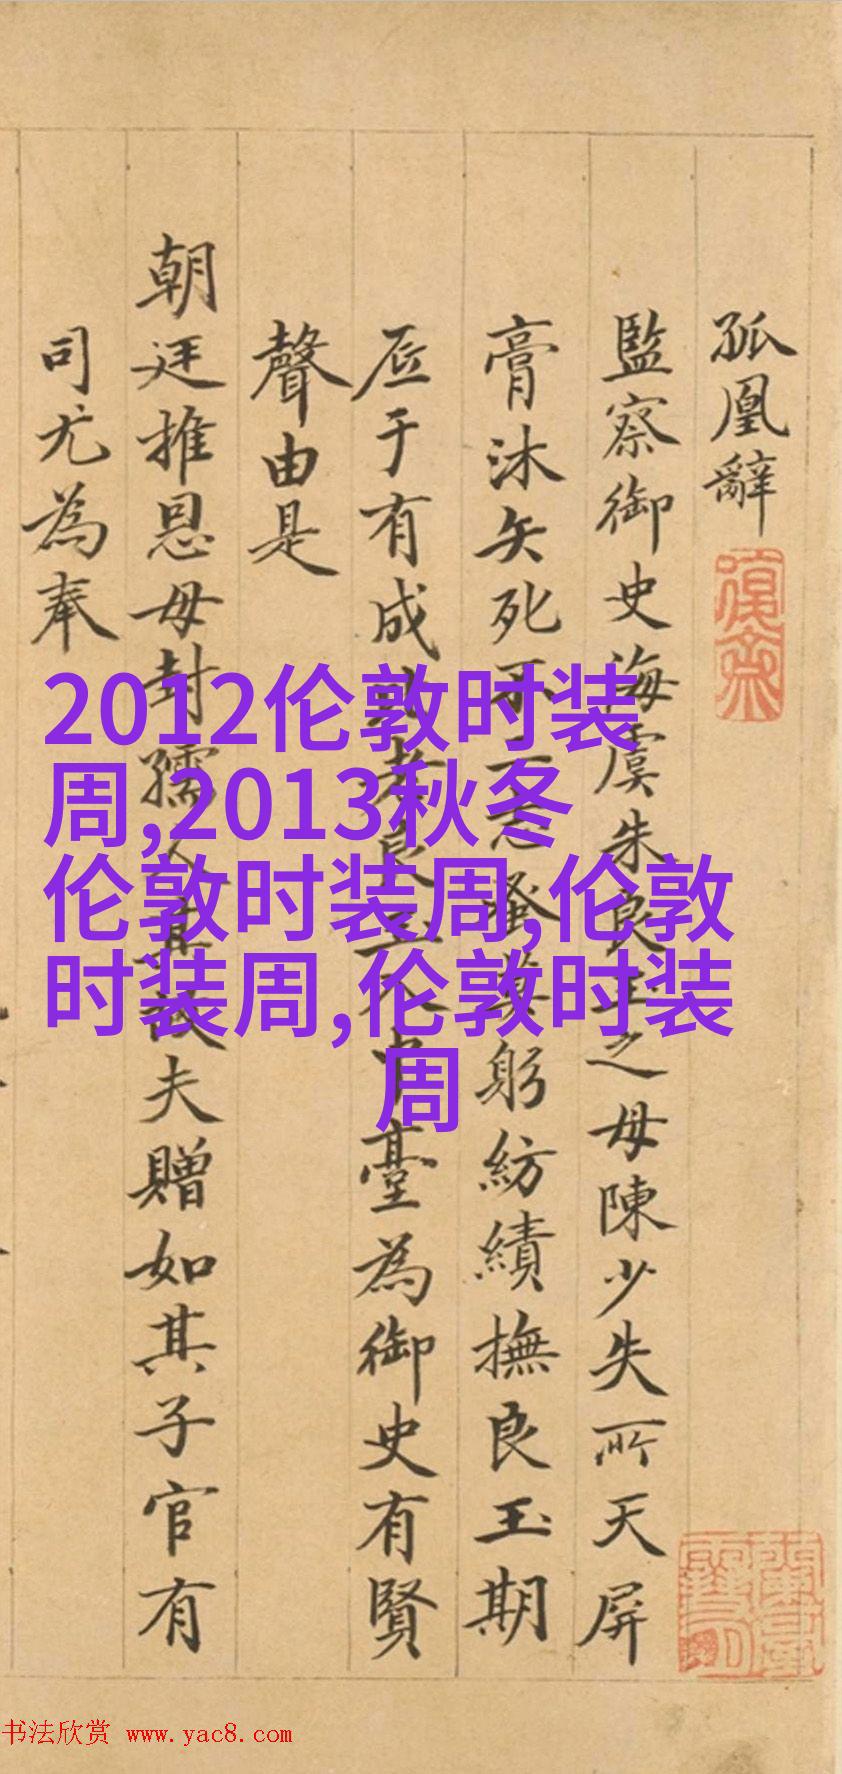 孤凰辭
監察御史海虞朱良玉之母陳少失所天屏
膏沐矢死不二志蚤莫躬紡績撫良玉期
底于有成
臺為御史有賢
聲由是
朝廷推恩母封孺人其故夫贈如其子官有
司尤為奉
2012伦敦时装
周,2013秋冬
伦敦时装周,伦敦
时装周,伦敦时装
周
书法欣赏 www.yac8.com